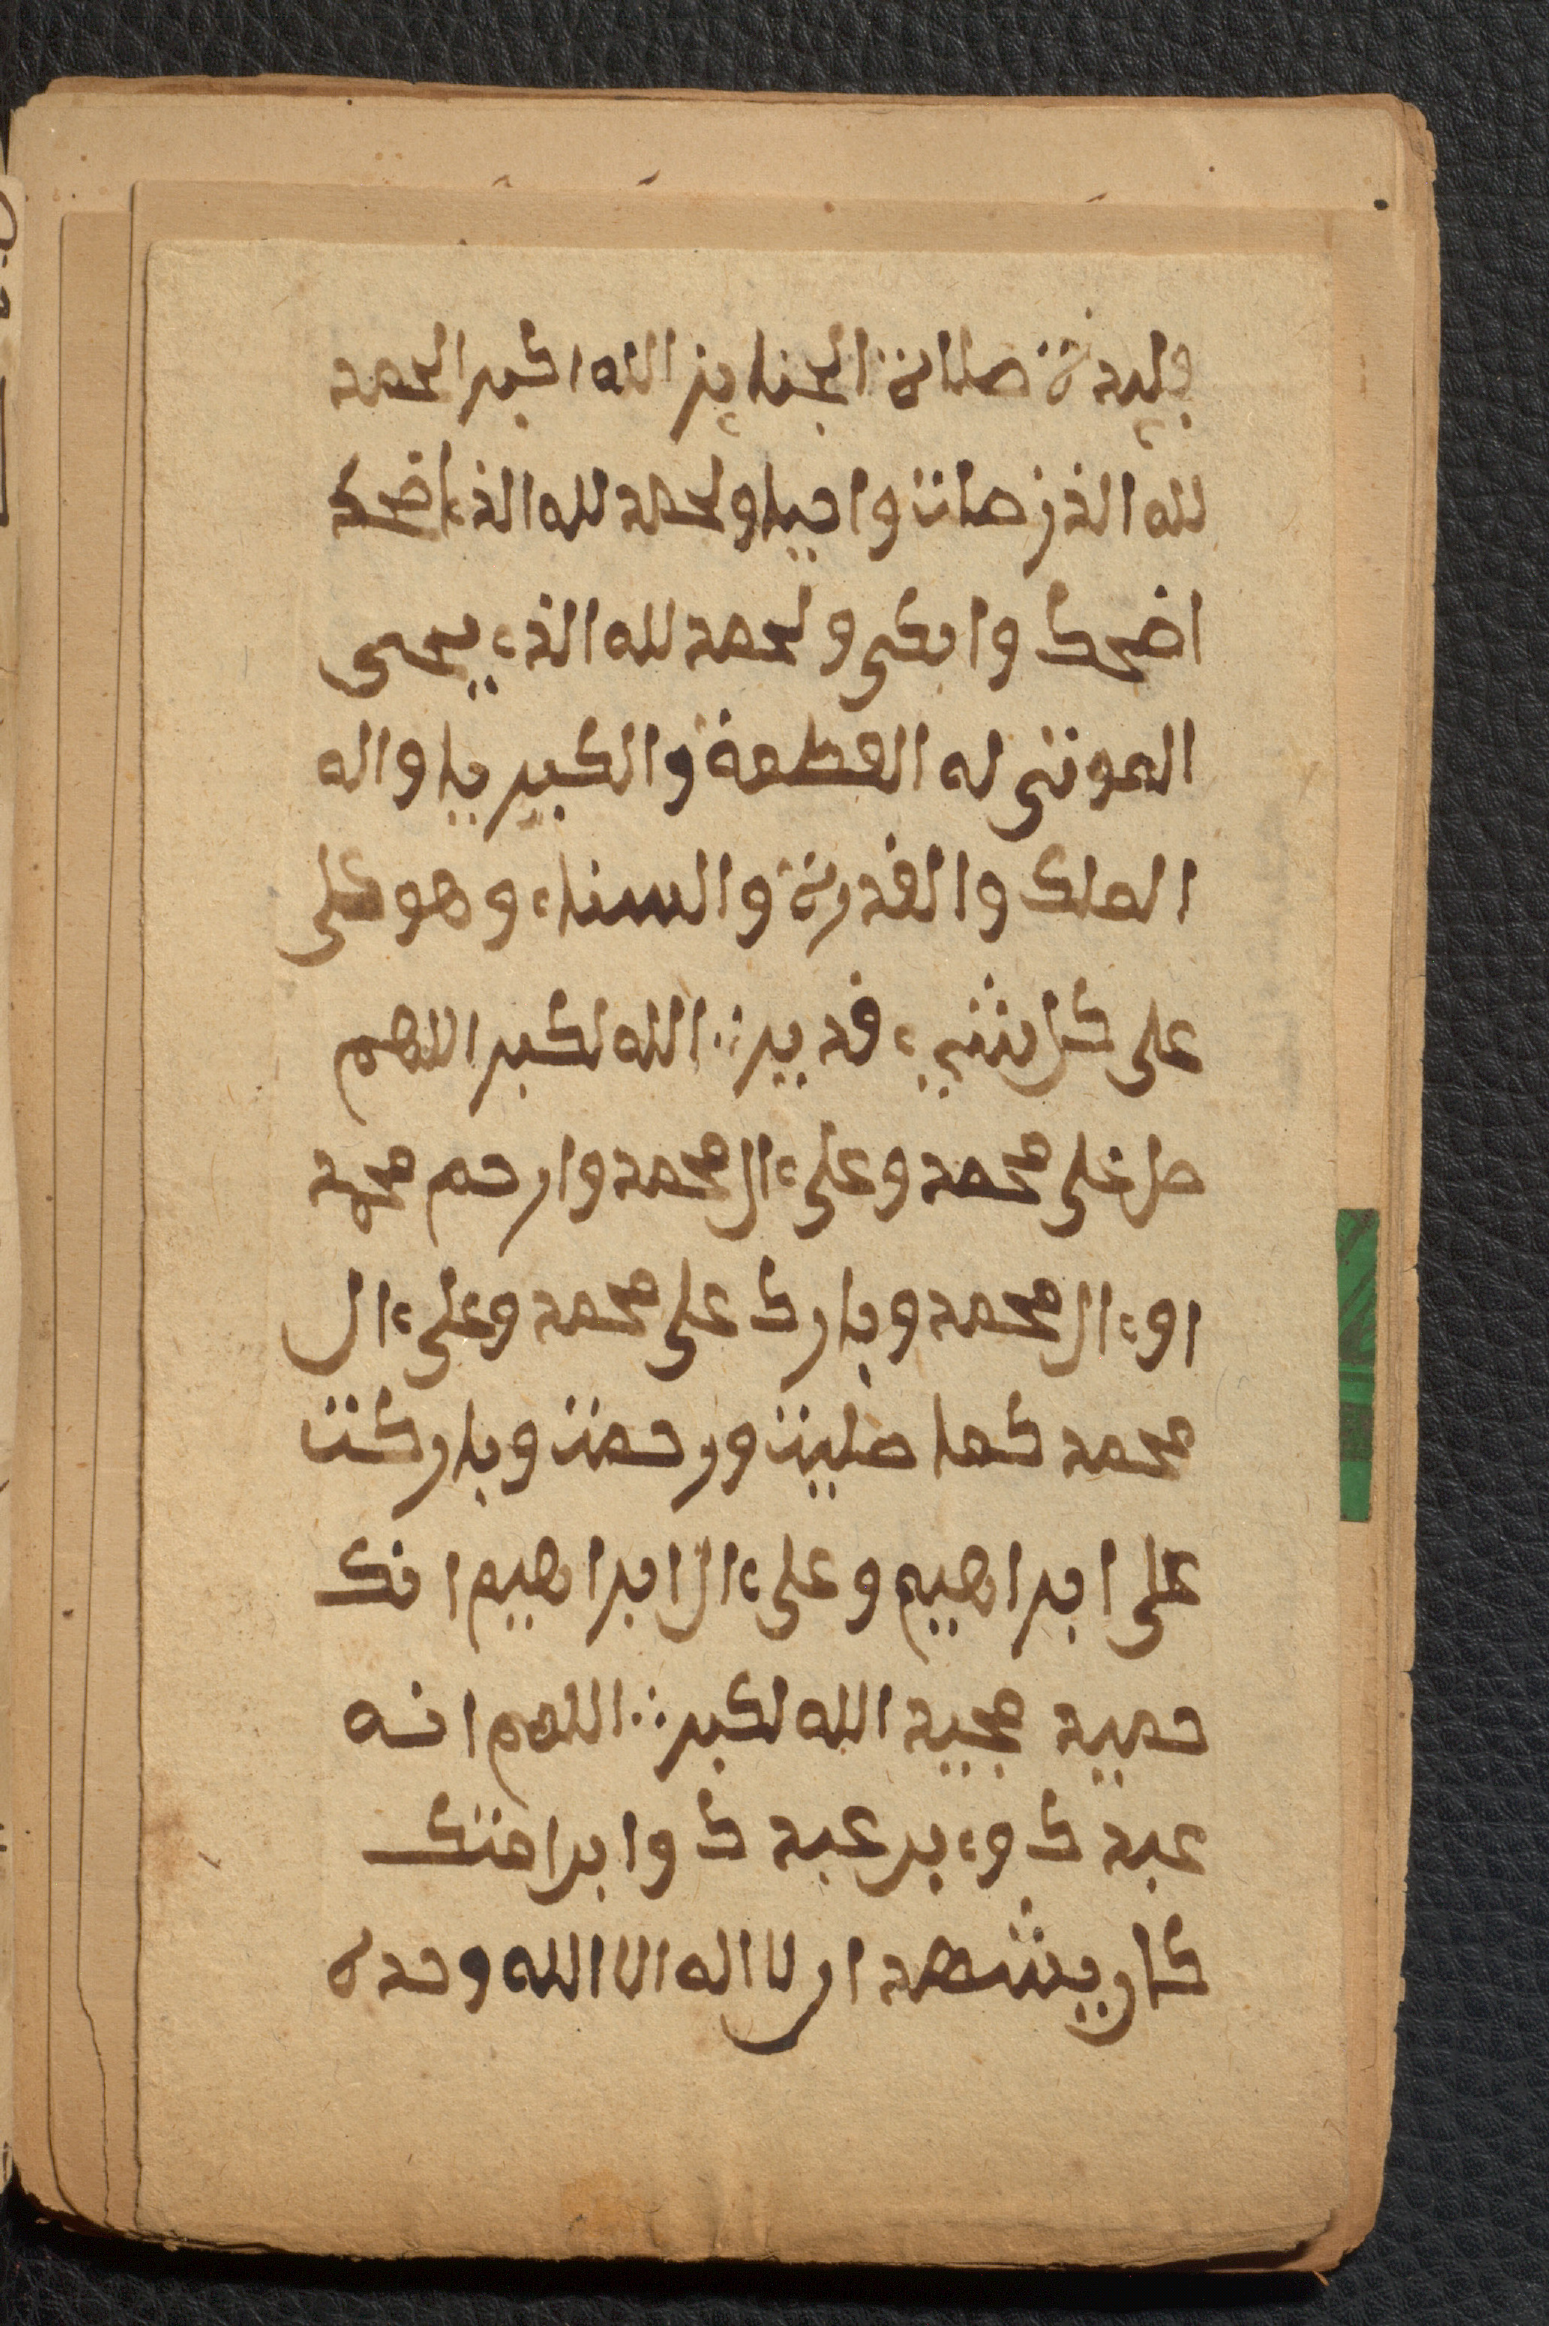 فايدة صلاة الجنايز الله اكبر الحمد
لله الذ مات واحيا ولحمد لله الذء اضحك
اضحك وابكى ولحمد لله الذء يحى
الموتى له العظمة والكبيرياء واله
الملك والقدرة والسناء وهو على
على كل شيء قدير ∴ الله لكبر اللهم
صل على محمد وعلى ءال محمد وارحم محمد
اوءال محمد وبارك على محمد وعلى ءال
محمد كما صليت ورحمت وباركت
على ابراهيم وعلى ءال ابراهيم انك
حميد مجيد الله لكبر ∴ اللهم انه
عبدك وءبن عبدك وابن امتك
كان يشهد ان لا اله الا الله وحده